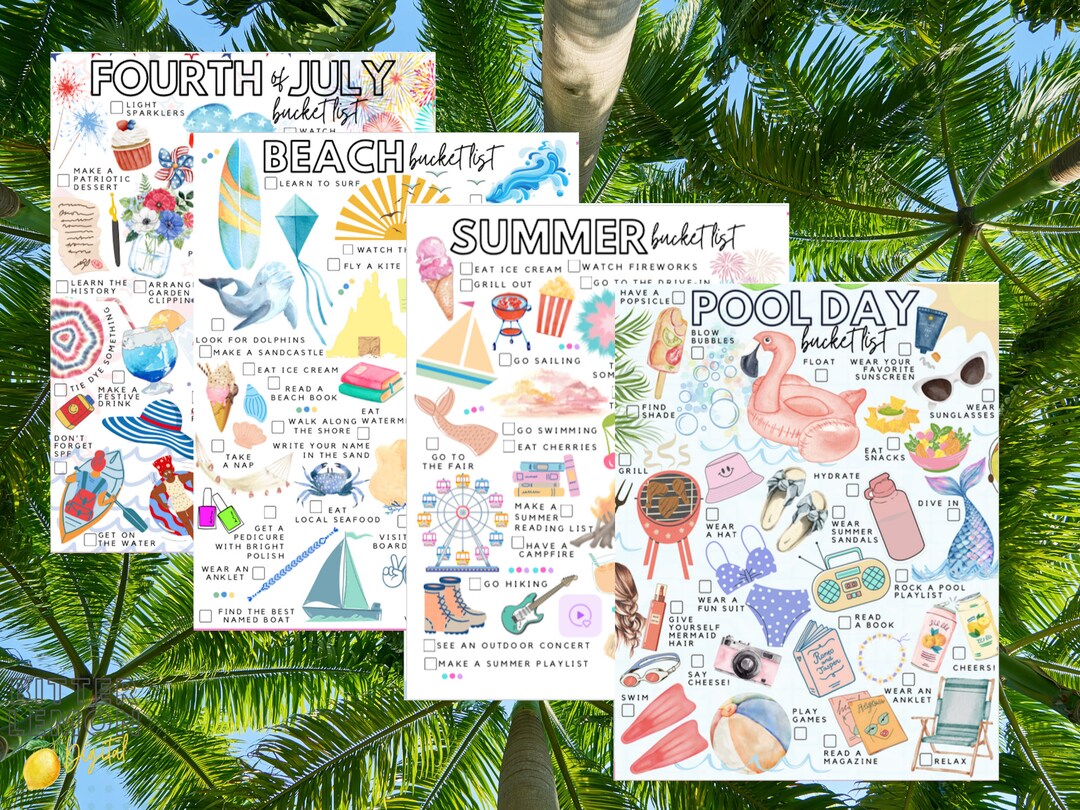 FOURTH of JULY
bucket list
LIGHT
SPARKLERS
WATCH
MAKE A
PATRIOTIC
DESSERT
LEARN THE
HISTORY
ARRANG
GARDEN
CLIPPIN
TIE DYE SOMETHING
MAKE A
FESTIVE
DRINK
DON'T
FORGET
SPF
GET ON
THE WATER
BEACH bucket list
LEARN TO SURF
WATCH TH
FLY A KITE
LOOK FOR DOLPHINS
MAKE A SANDCASTLE
EAT ICE CREAM
READ A
BEACH BOOK
EAT
WATERM
WALK ALONG
THE SHORE
TAKE
A NAP
WRITE YOUR NAME
IN THE SAND
EAT
LOCAL SEAFOOD
GET A
PEDICURE
WITH BRIGHT
POLISH
VISIT
BOARD
WEAR AN
ANKLET
FIND THE BEST
NAMED BOAT
SUMMER bucket list
EAT ICE CREAM
WATCH FIREWORKS
GRILL OUT
GO TO THE DRIVE-IN
GO SAILING
GO SWIMMING
EAT CHERRIES
GO TO
THE FAIR
MAKE A
SUMMER
READING LIST
HAVE A
CAMPFIRE
GO HIKING
SEE AN OUTDOOR CONCERT
MAKE A SUMMER PLAYLIST
POOL DAY
bucket list
HAVE A
POPSICLE
BLOW
BUBBLES
FLOAT
WEAR YOUR
FAVORITE
SUNSCREEN
FIND
SHADE
WEAR
SUNGLASSES
EAT
SNACKS
GRILL
HYDRATE
DIVE IN
WEAR
A HAT
WEAR
SUMMER
SANDALS
WEAR A
FUN SUIT
ROCK A POOL
PLAYLIST
GIVE
YOURSELF
MERMAID
HAIR
READ
A BOOK
Romeo
and
Juliet
SAY
CHEESE!
CHEERS!
WEAR AN
ANKLET
SWIM
PLAY
GAMES
READ A
MAGAZINE
RELAX
Digital